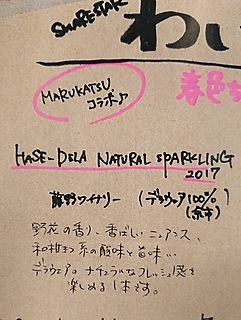 SHARE STAR
わい
MARUKATSU
コラボ♪
春色
HASE-DELA NATURAL SPARKLING
2017
藤野ワイナリー (デラウェア100%)
(余市)
野花の香り、香ばしいニュアンス、
和柑きつ系の酸味と旨味…
デラウェアの ナチュラルなフレッシュ感を
楽しめる1本です。